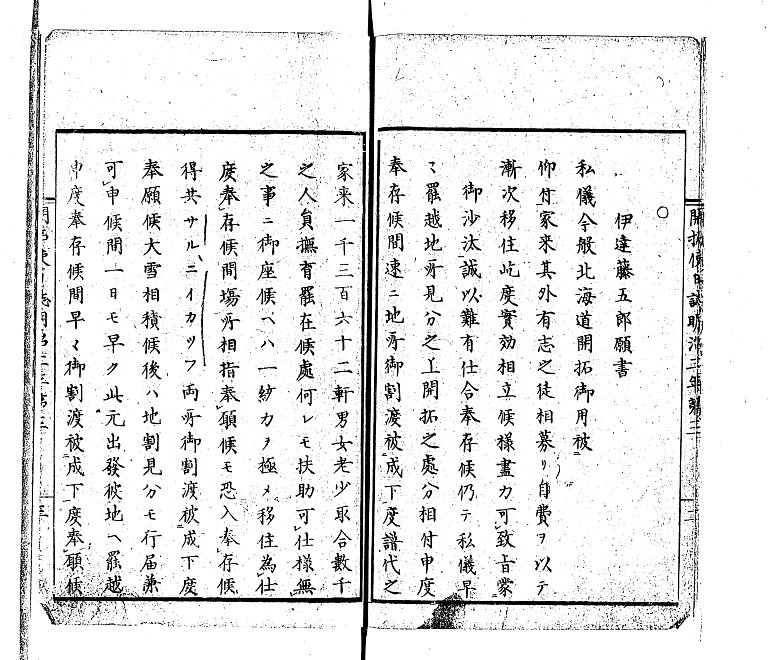 開拓使日誌明治三年第三
二
〇
伊達藤五郎願書
私儀今般北海道開拓御用被
仰付家来其外有志之徒相募リ自費ヲ以テ
漸次移住屹度實効相立候様盡力可致旨蒙
御沙汰誠以難有仕合奉存候仍テ私儀早
〻罷越地所見分之上開拓之處分相付申度
奉存候間速ニ地所御割渡被成下度譜代之
家来一千三百六十二軒男女老少取合數千
之人員撫育罷在候處何レモ扶助可仕様無
之事ニ御座候ヘハ一紡力ヲ極メ移住為仕
度奉存候間場所相指奉願候モ恐入奉存候
得共サルニイカツフ両所御割渡被成下度
奉願候大雪相積候後ハ地割見分モ行届兼
可申候間一日モ早ク此元出發彼地ヘ罷越
申度奉存候間早〻御割渡被成下度奉願候
三